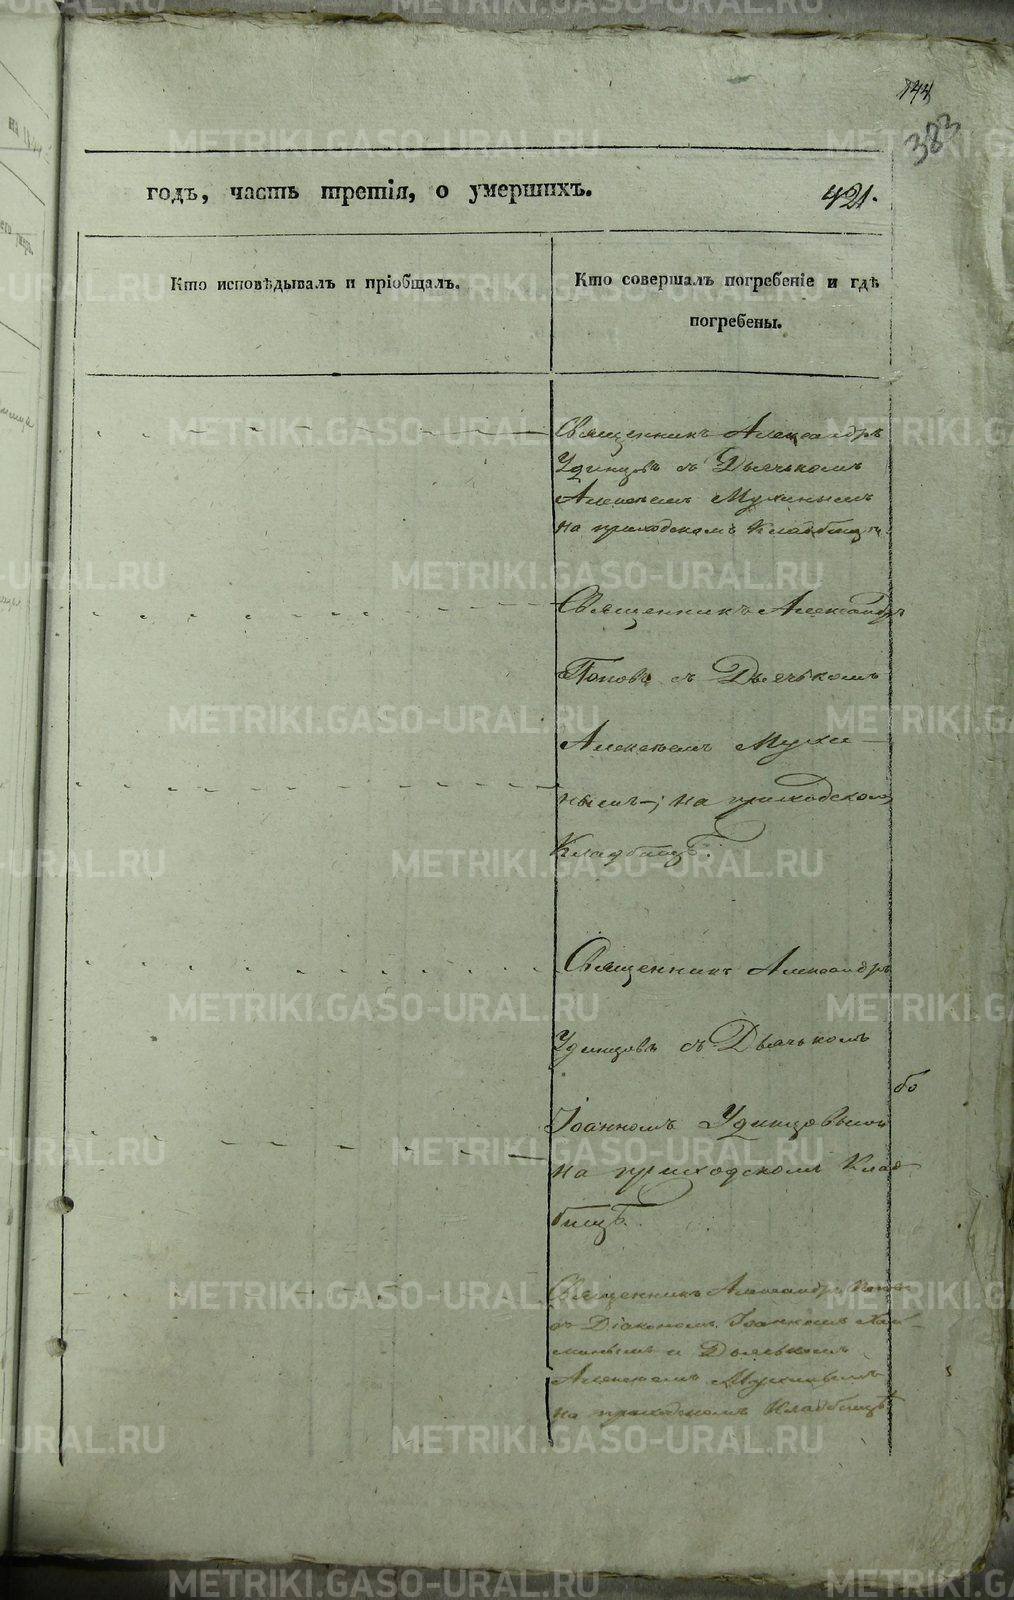 144
383
годъ, часть третія, о умершихъ.
421.
Кто исповѣдывалъ и пріобщалъ.
Кто совершалъ погребеніе и гдѣ
погребены.
Священникъ Александръ
Удинцовъ съ Дьячькомъ
Алексѣемъ Мухинымъ
на приходскомъ Кладбищѣ.
Священникъ Александръ
Поповъ съ Дьячькомъ
Алексѣемъ Мухи–
нымъ–; на приходскомъ
Кладбищѣ.
Священникъ Александръ
Удинцовъ съ Дьячькомъ
бо
Іоанномъ Удинцовымъ
на приходскомъ Клад
бищѣ.
Священникъ Александръ Поповъ
съ Діакономъ Іоанномъ
и Дьячькомъ
Алексѣемъ Мухинымъ
на приходскомъ Кладбищѣ
METRIKI.GASO-URAL.RU